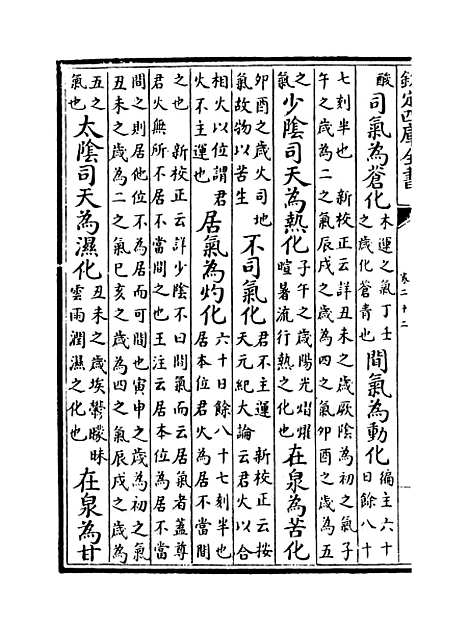 欽定四庫全書
卷二十二
酸司氣為蒼化木運之氣丁壬之歲化蒼青也間氣為動化偏主六十日餘八十
七刻半也 新校正云詳丑未之歲厥陰為初之氣子
午之歲為二之氣辰戌之歲為四之氣卯酉之歲為五
之氣少陰司天為熱化子午之歲陽光熠燿暄暑流行熱之化也在泉為苦化
卯酉之歲火司地氣故物以苦生不司氣化君不主運 新校正云按天元紀大論云君火以合
相火以位謂君火不主運也居氣為灼化六十日餘八十七刻半也居本位君火為居不當間
之也 新校正云詳少陰不曰間氣而云居氣者蓋尊
君火無所不居不當間之也王注云居本位為居不當
間之則居他位不為居而可間也寅申之歲為初之氣
丑未之歲為二之氣巳亥之歲為四之氣辰戌之歲為
五之氣也太陰司天為濕化丑未之歲埃鬱曚昧雲雨潤濕之化也在泉為甘